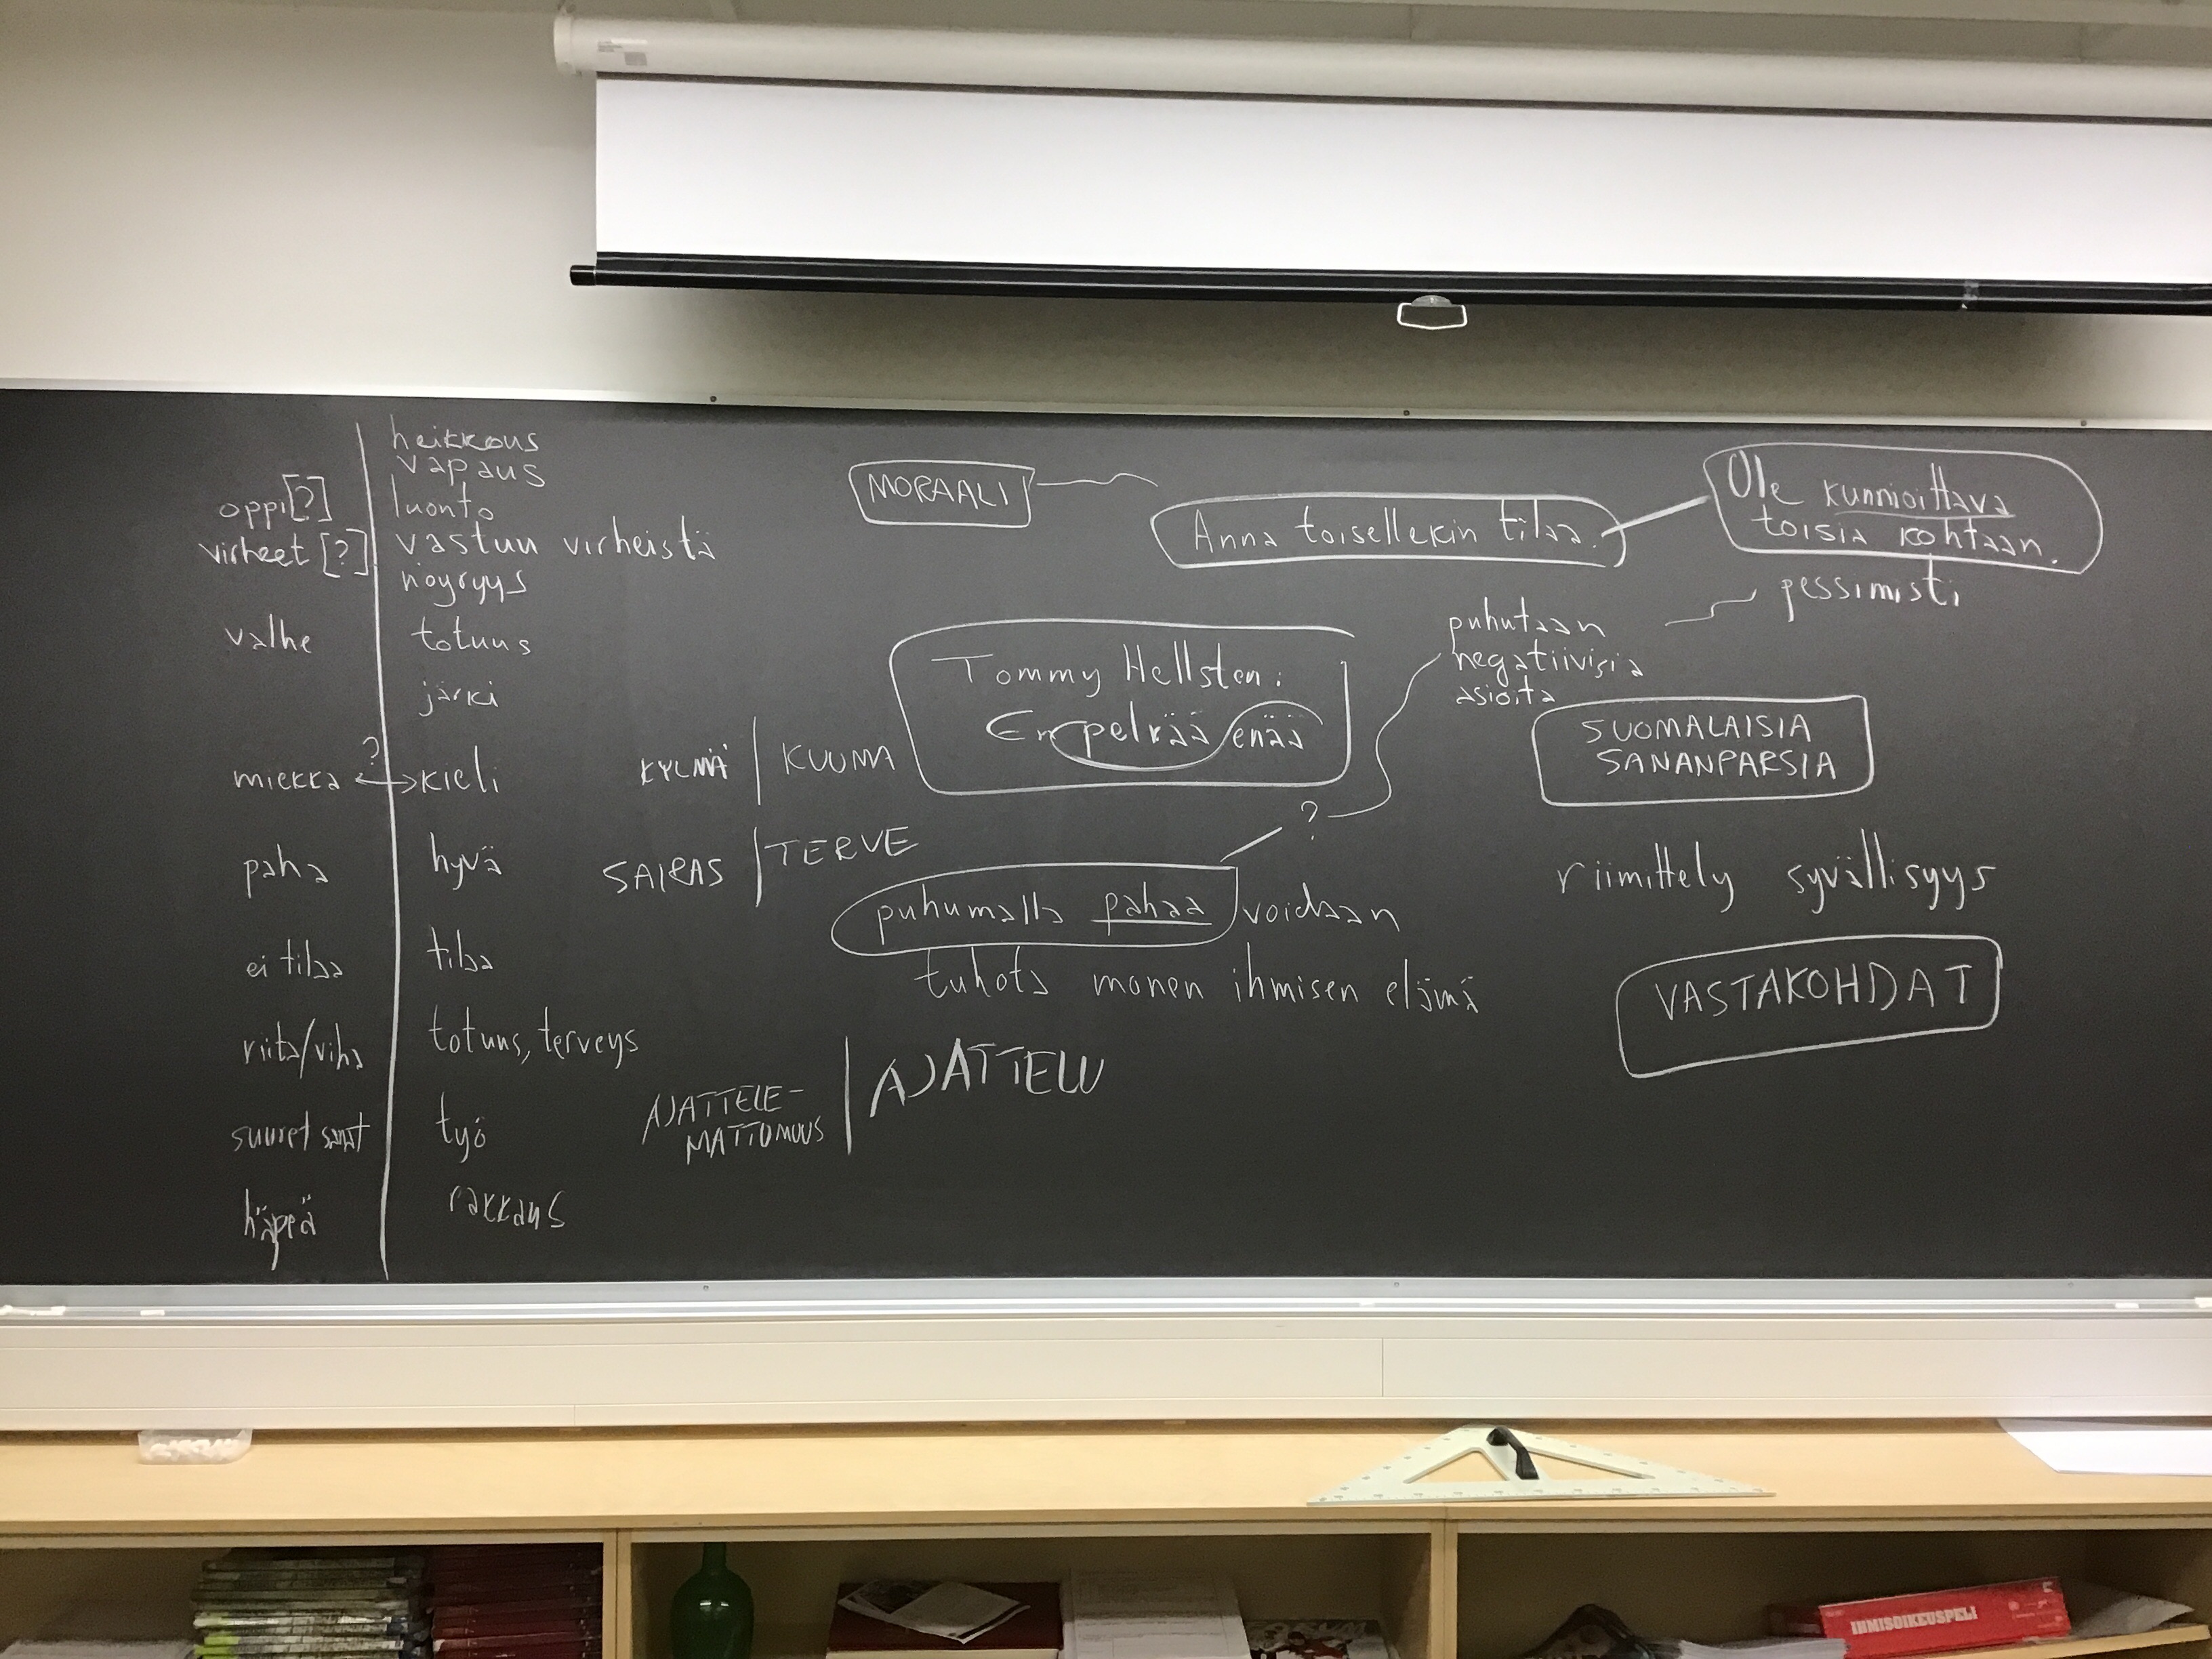 heikkous
vapaus
oppi[?] luonto
virheet [?] vastuu virheistä
nöyryys
valhe totuus
järki
?
miekka ↔ kieli
paha hyvä
ei tilaa tilaa
riita/viha totuus, terveys
suuret sanat työ
häpeä rakkaus
KYLMÄ | KUUMA
SAIRAS | TERVE
AJATTELE-
MATTOMUUS | AJATTELU
MORAALI
Anna toisellekin tilaa.
Ole kunnioittava
toisia kohtaan.
Tommy Hellsten:
En pelkää enää
puhutaan
negatiivisia
asioita
pessimisti
?
puhumalla pahaa voidaan
tuhota monen ihmisen elämä
SUOMALAISIA
SANANPARSIA
riimittely syvällisyys
VASTAKOHDAT
IHMISOIKEUSPELI